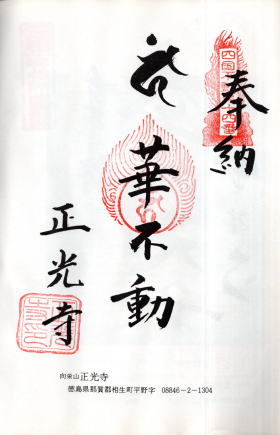 奉納
華不動
正光寺
向栄山 正光寺
徳島県那賀郡相生町平野字 08846-2-1304